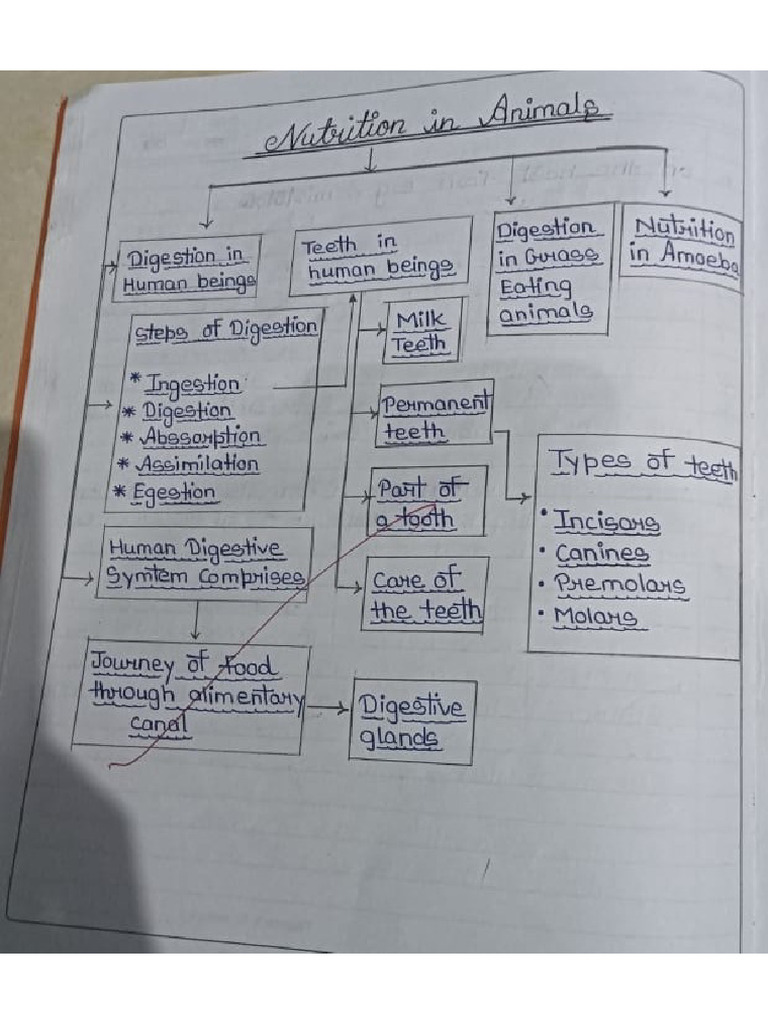 Nutrition in Animals
Digestion in
Human beings
Teeth in
human beings
Digestion
in Grass
Eating
animals
Nutrition
in Amoeba
Steps of Digestion
* Ingestion
* Digestion
* Abssorption
* Assimilation
* Egestion
Milk
Teeth
Permanent
teeth
Part of
a tooth
Care of
the teeth
Types of teeth
• Incisors
• Canines
• Premolars
• Molars
Human Digestive
Symtem Comprises
Journey of food
through alimentary
canal
Digestive
glands